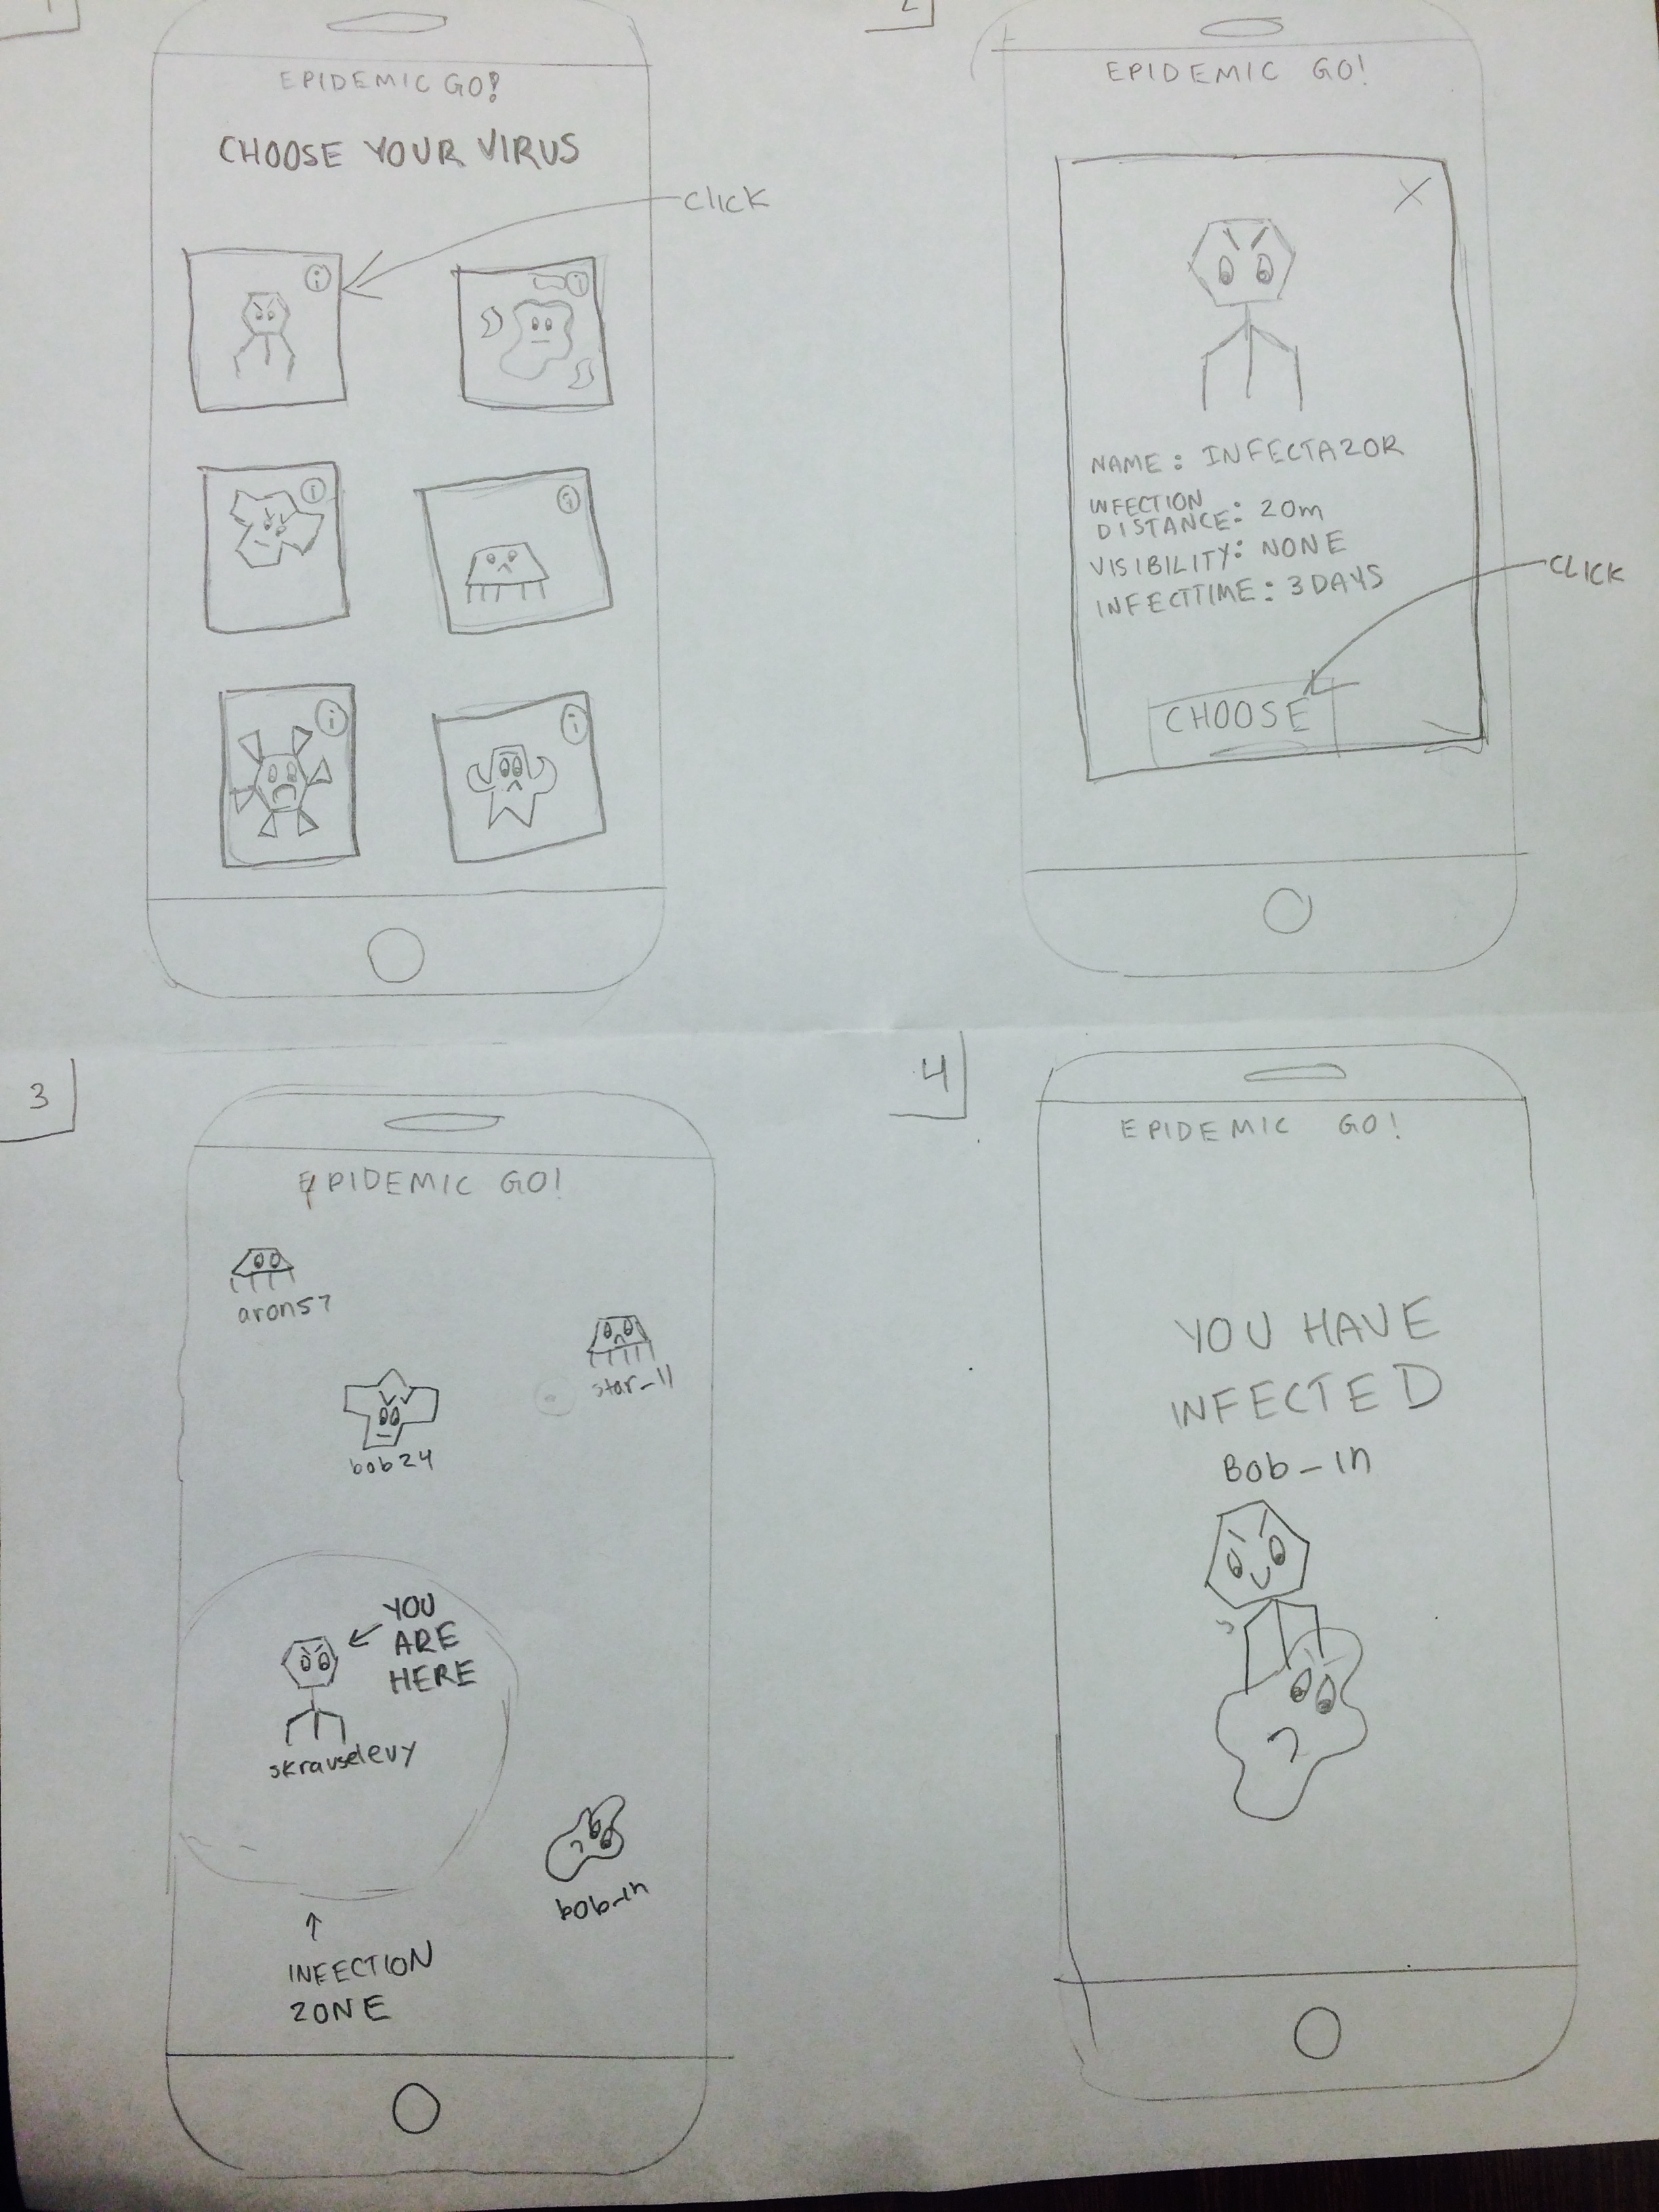 1
EPIDEMIC GO!
CHOOSE YOUR VIRUS
CLICK
i
i
i
i
i
i
2
EPIDEMIC GO!
X
NAME: INFECTAZOR
INFECTION
DISTANCE: 20m
VISIBILITY: NONE
INFECTTIME: 3 DAYS
CLICK
CHOOSE
3
EPIDEMIC GO!
aron57
star_11
bob24
YOU
ARE
HERE
skrauselevy
bob_in
INFECTION
ZONE
4
EPIDEMIC GO!
YOU HAVE
INFECTED
Bob_in